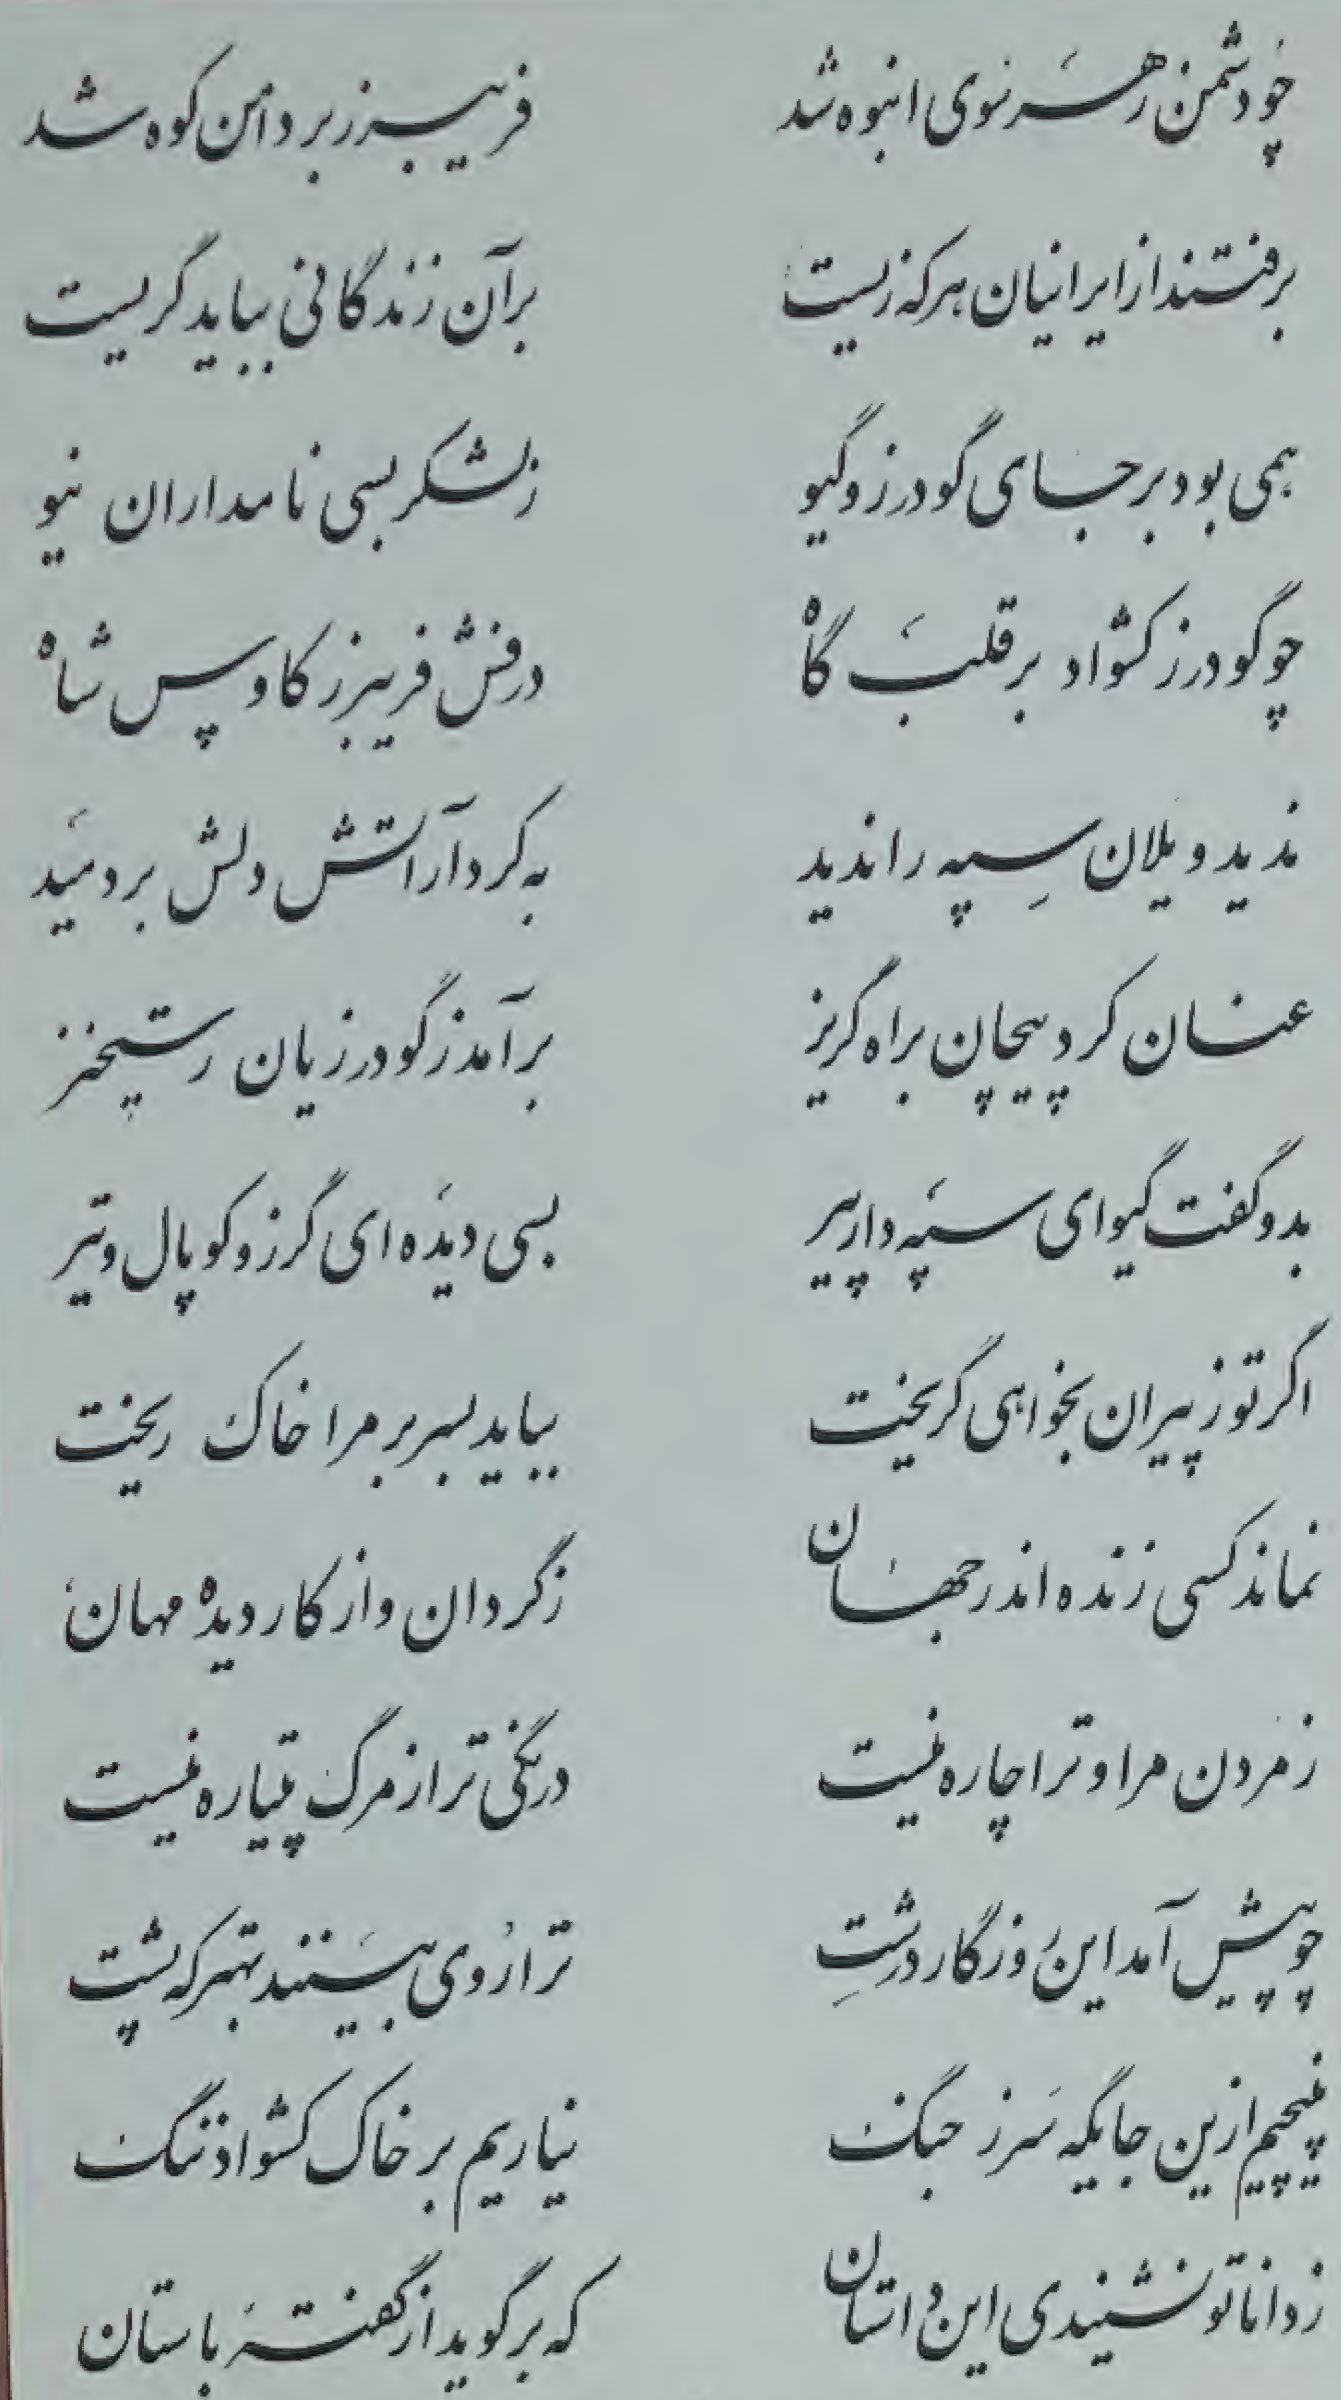 چو دشمن ز هر سوی انبوه شد فریبرز بر دامن کوه شد
برفتند از ایرانیان هر که زیست بر آن زندگانی بباید گریست
همی بود بر جای گودرز و گیو ز لشکر بسی نامداران نیو
چو گودرز کشواد بر قلب گاه درفش فریبرز کاوس شاه
ندید و یلان سپه را ندید به کردار آتش دلش بردمید
عنان کرد پیچان براه گریز برآمد ز گودرزیان رستخیز
بدو گفت گیو ای سپهدار پیر بسی دیده‌ای گرز و کوپال و تیر
اگر تو ز پیران بخواهی گریخت بباید بسر بر مرا خاک ریخت
نماند کسی زنده اندر جهان ز گردان و از کار دیده مهان
ز مردن مرا و ترا چاره نیست درنگی تر از مرگ پتیاره نیست
چو پیش آمد این روزگار درشت ترا روی بینند بهتر که پشت
نپیچیم ازین جایگه سر ز جنگ نیاریم بر خاک کشواد ننگ
ز دانا تو نشنیدی این داستان که برگوید از گفتهٔ باستان